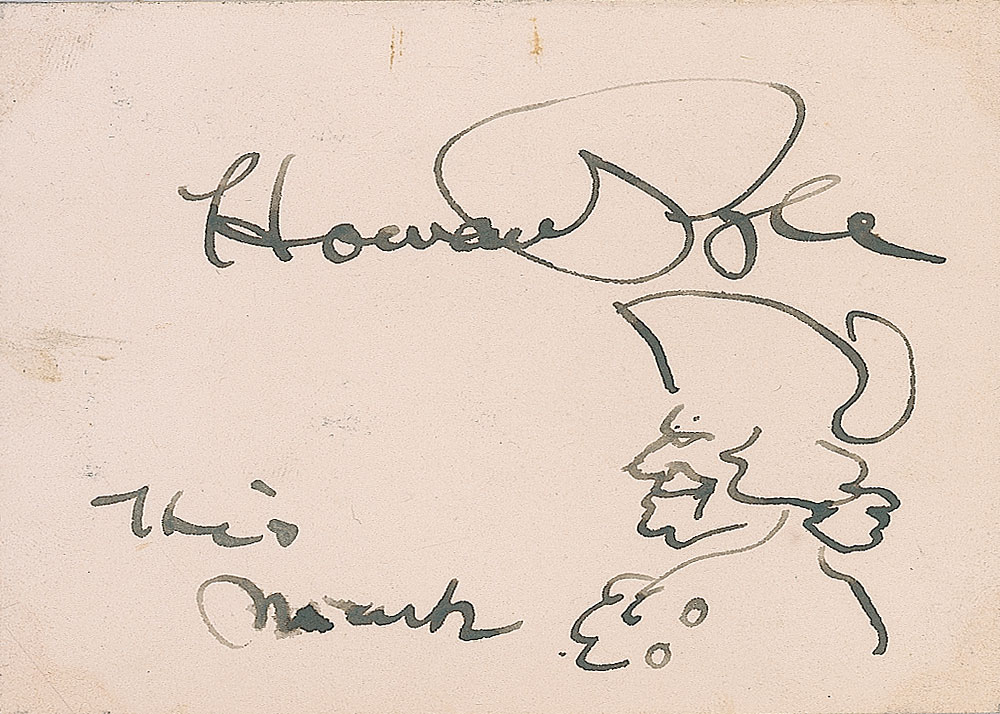 Howard Pyle
His
Mark